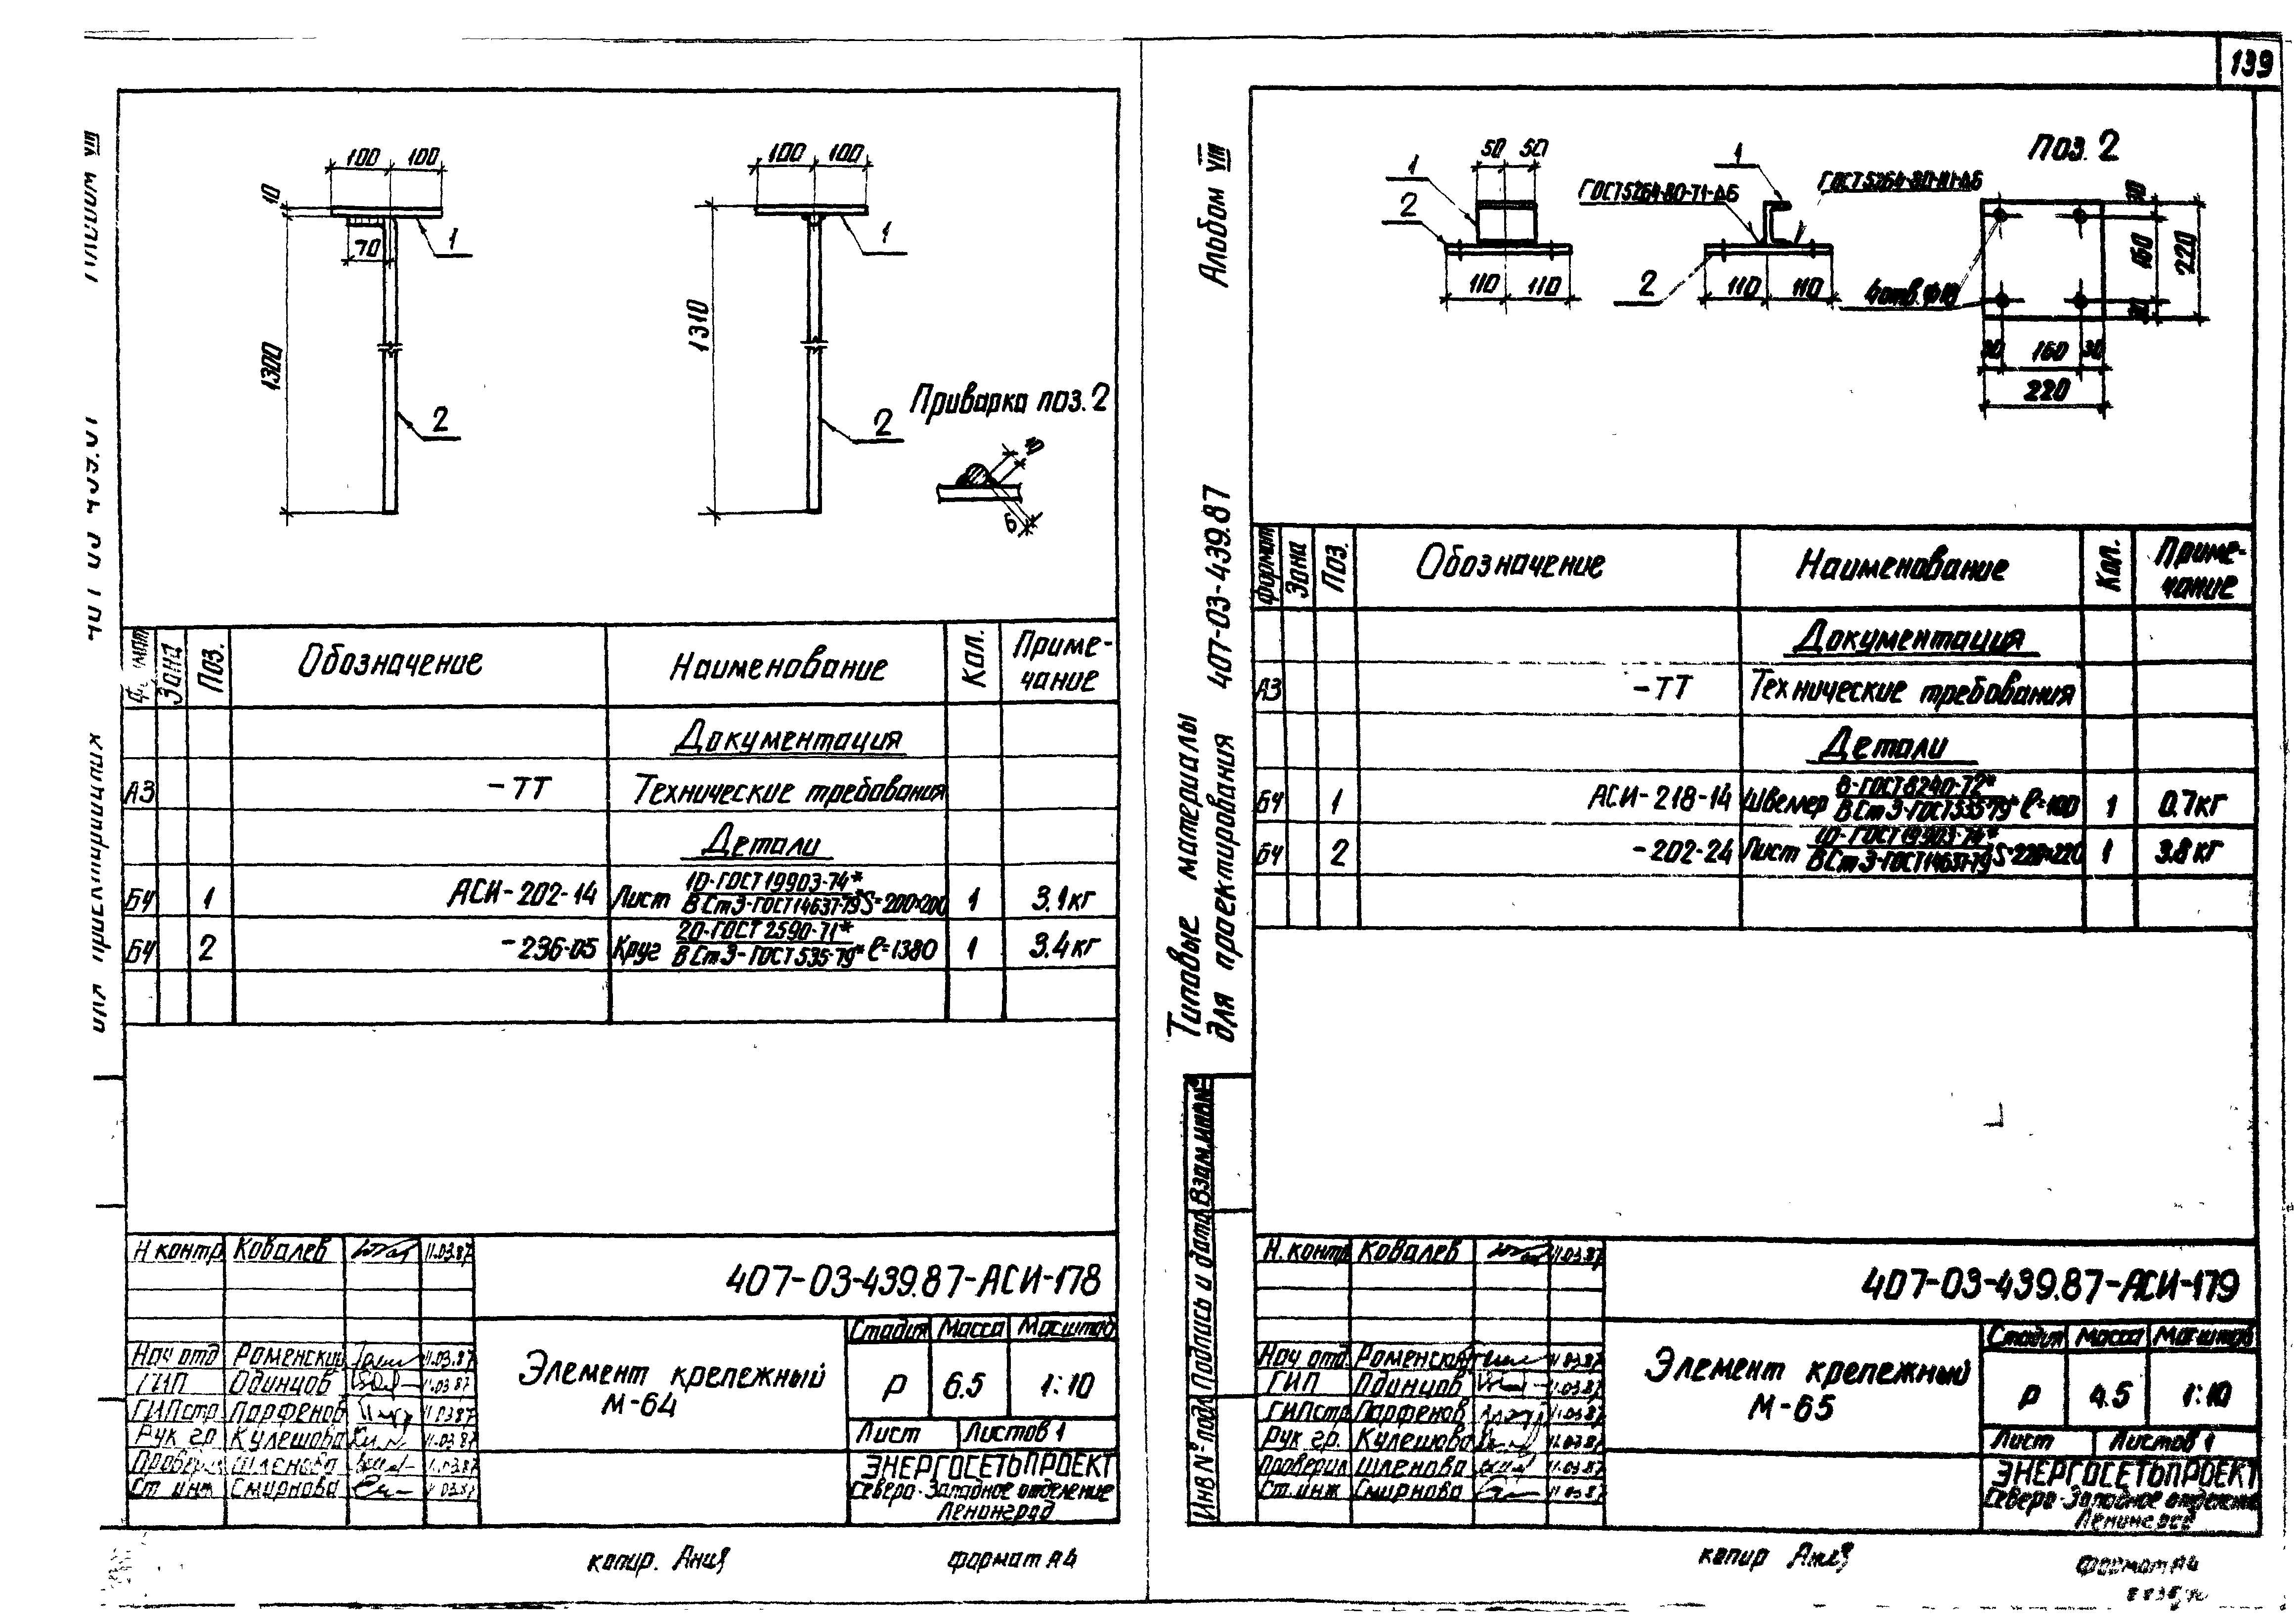 139
Альбом VIII
407-03-439.87
Типовые материалы
для проектирования
100 100
10
70
1
1300
2
100 100
1
1310
2
Приварка поз. 2
6
Зона
Поз.
Обозначение
Наименование
Кол.
Приме-
чание
Документация
А3 -ТТ Технические требования
Детали
БЧ 1 АСИ-202-14 Лист 10-ГОСТ 19903-74* / ВСт3-ГОСТ14637-79* S=200×200 1 3.1кг
БЧ 2 -236-05 Круг 20-ГОСТ 2590-71* / ВСт3-ГОСТ535-79* ℓ=1380 1 3.4кг
Н.контр Ковалев 11.03.87
407-03-439.87-АСИ-178
Стадия Масса Масштаб
Нач отд Роменский 11.03.87
ГИП Одинцов 11.03.87
ГИПстр Парфенов 11.03.87
Рук гр. Кулешова 11.03.87
Проверил Шленова 11.03.87
Ст инж Смирнова 11.03.87
Элемент крепежный
М-64
Р 6.5 1:10
Лист Листов 1
ЭНЕРГОСЕТЬПРОЕКТ
Северо-Западное отделение
Ленинград
копир. формат А4
1
2
50 50
110 110
1
ГОСТ5264-80-Т1-Δ6
2
110 110
поз. 2
4отв.
30
160
220
30 160 30
220
Формат
Зона
Поз.
Обозначение
Наименование
Кол.
Приме-
чание
Документация
А3 -ТТ Технические требования
Детали
БЧ 1 АСИ-218-14 Швеллер 8-ГОСТ8240-72* / ВСт3-ГОСТ535-79* ℓ=100 1 0.7кг
БЧ 2 -202-24 Лист 10-ГОСТ19903-74* / ВСт3-ГОСТ14637-79* S=220×220 1 3.8кг
Взам.инв.№
Подпись и дата
Инв № подл
Н.контр. Ковалев 11.03.87
407-03-439.87-АСИ-179
Стадия Масса Масштаб
Нач отд. Роменский 11.03.87
ГИП Одинцов 11.03.87
ГИПстр Парфенов 11.03.87
Рук гр. Кулешова 11.03.87
Проверил Шленова 11.03.87
Ст.инж Смирнова 11.03.87
Элемент крепежный
М-65
Р 4.5 1:10
Лист Листов 1
ЭНЕРГОСЕТЬПРОЕКТ
Северо-Западное отделение
Ленинград
копир формат А4